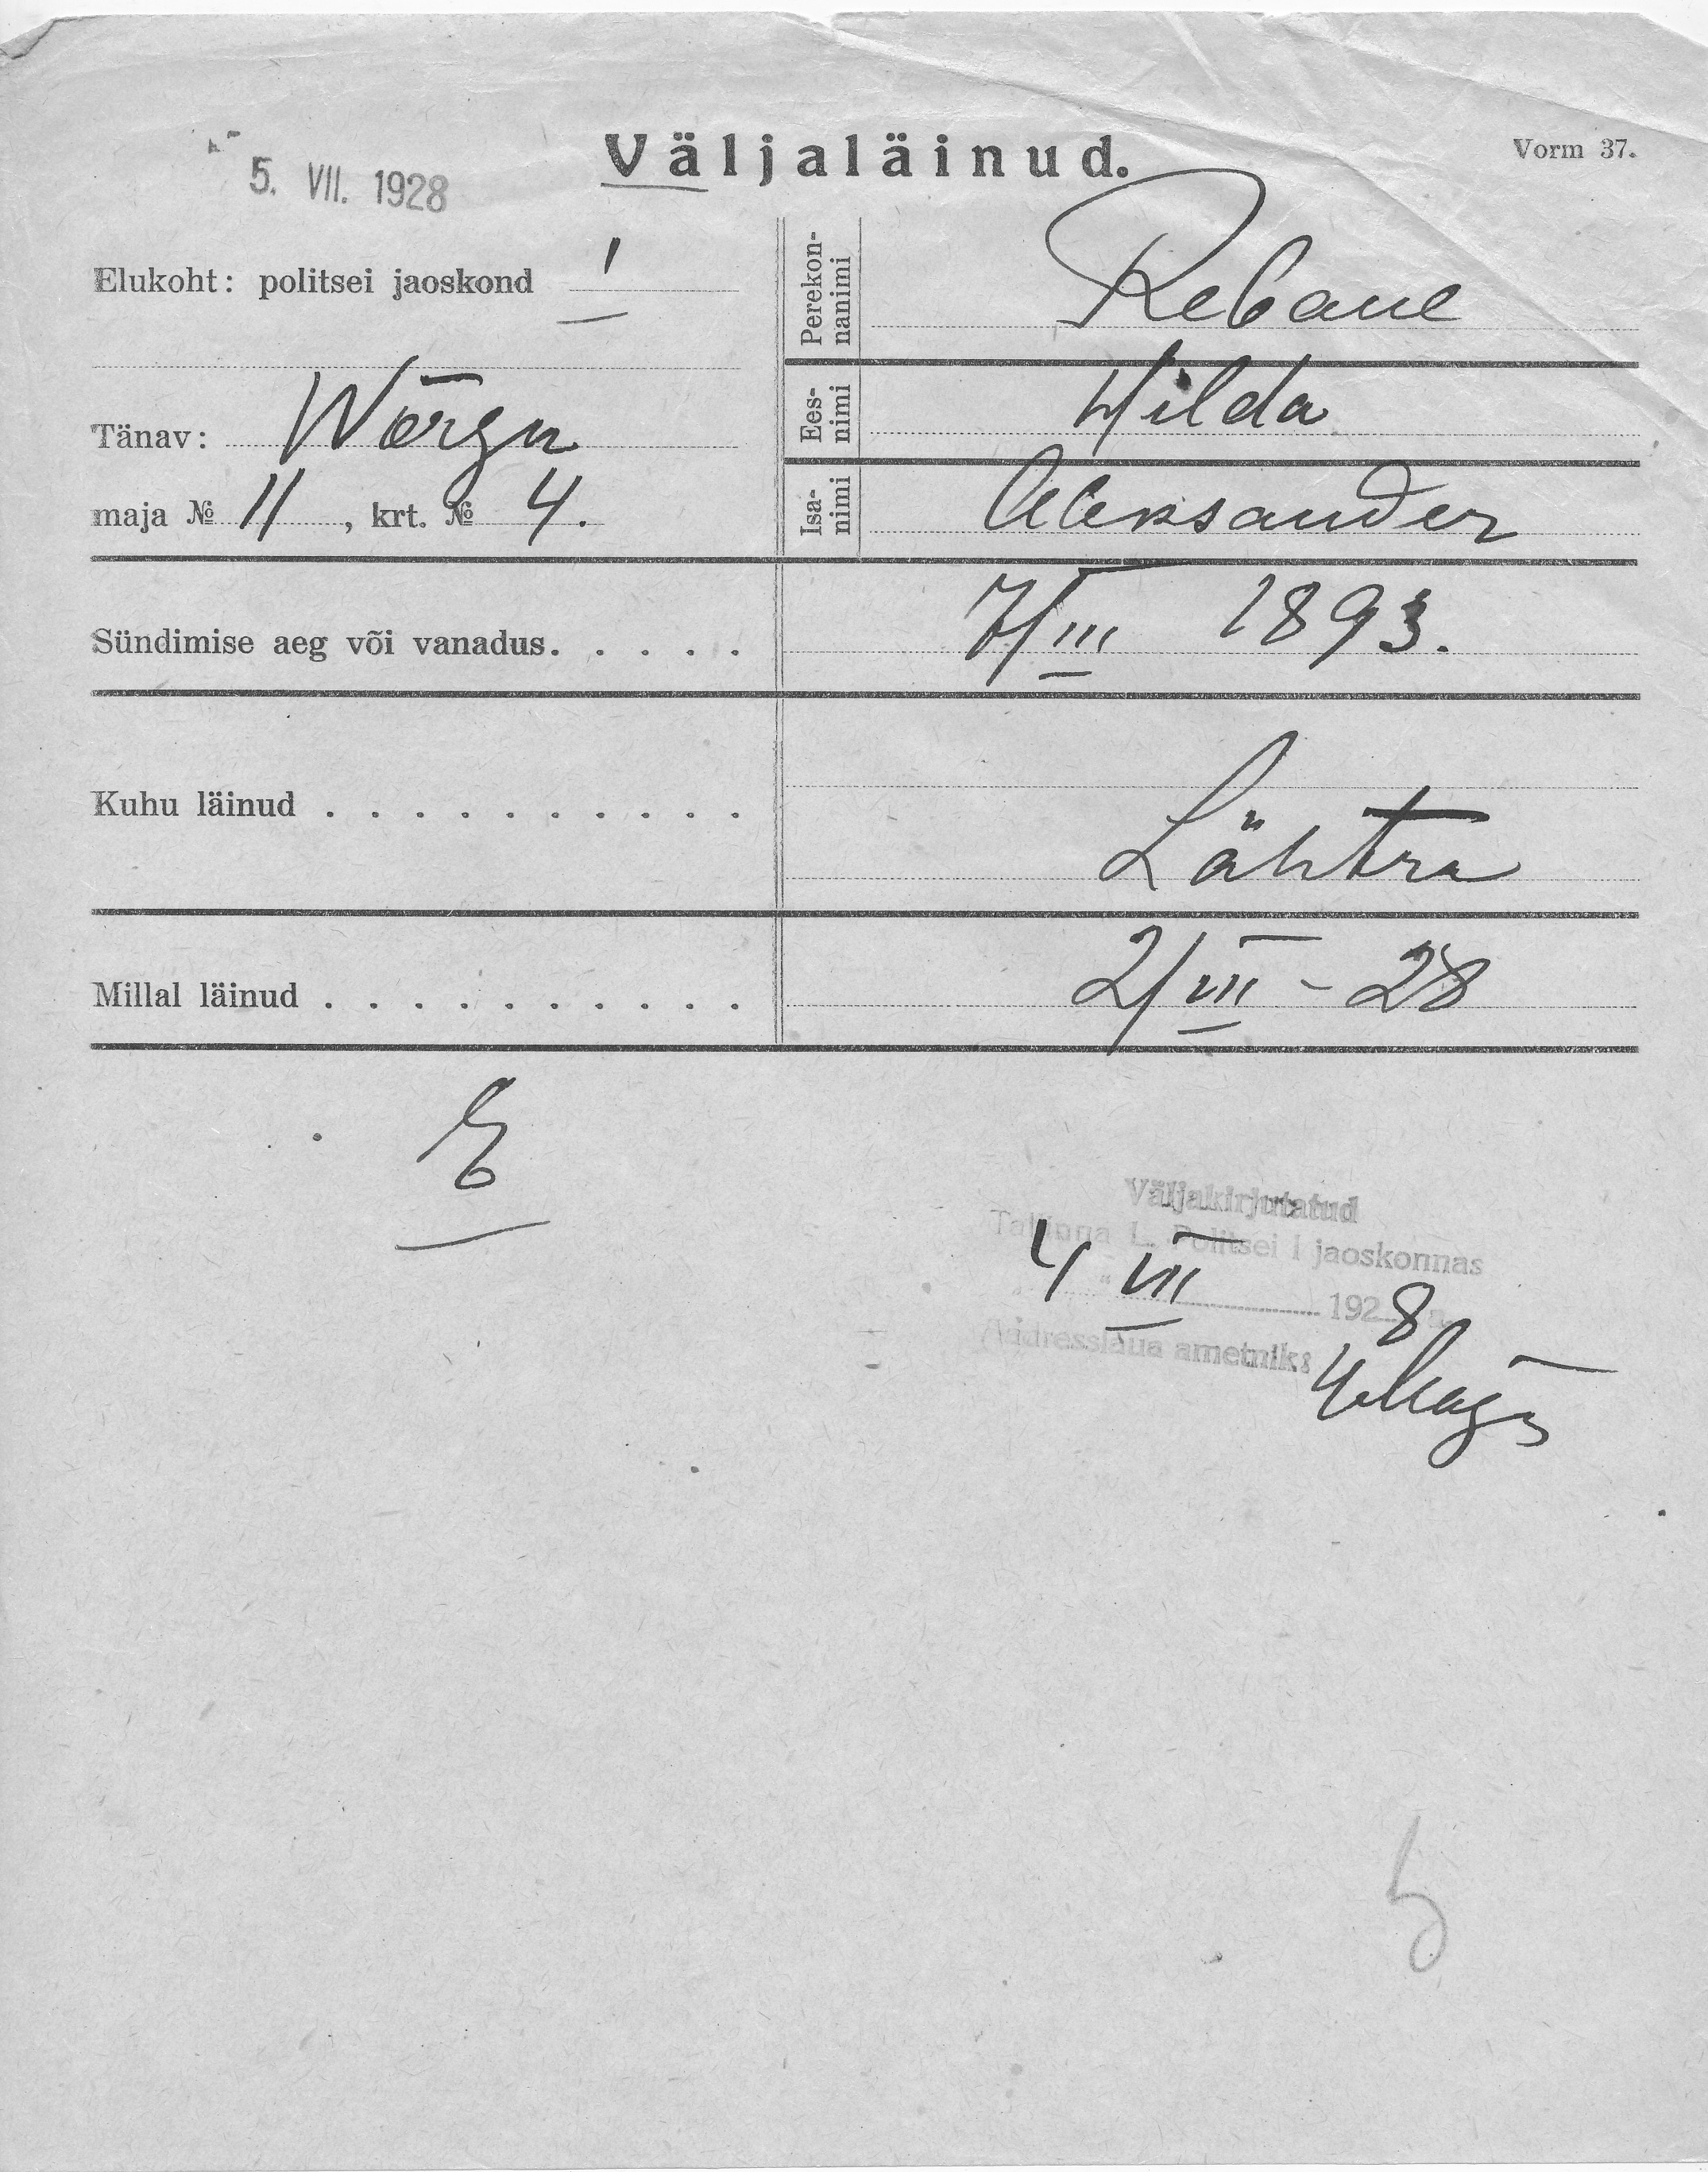 Väljaläinud.
Vorm 37.
5. VII. 1928
Elukoht: politsei jaoskond I
Perekon-
nanimi
Rebane
Tänav: Wõrgu
Ees-
nimi
Hilda
maja № 11, krt. № 4.
Isa-
nimi
Aleksander
Sündimise aeg või vanadus. . . . .
7/III 1893.
Kuhu läinud . . . . . . . . . .
Lähtru
Millal läinud . . . . . . . . . .
2/VII - 28
Väljakirjutatud
Tallinna L. Politsei I jaoskonnas
4 VII 1928
Aadresslaua ametnik:
5